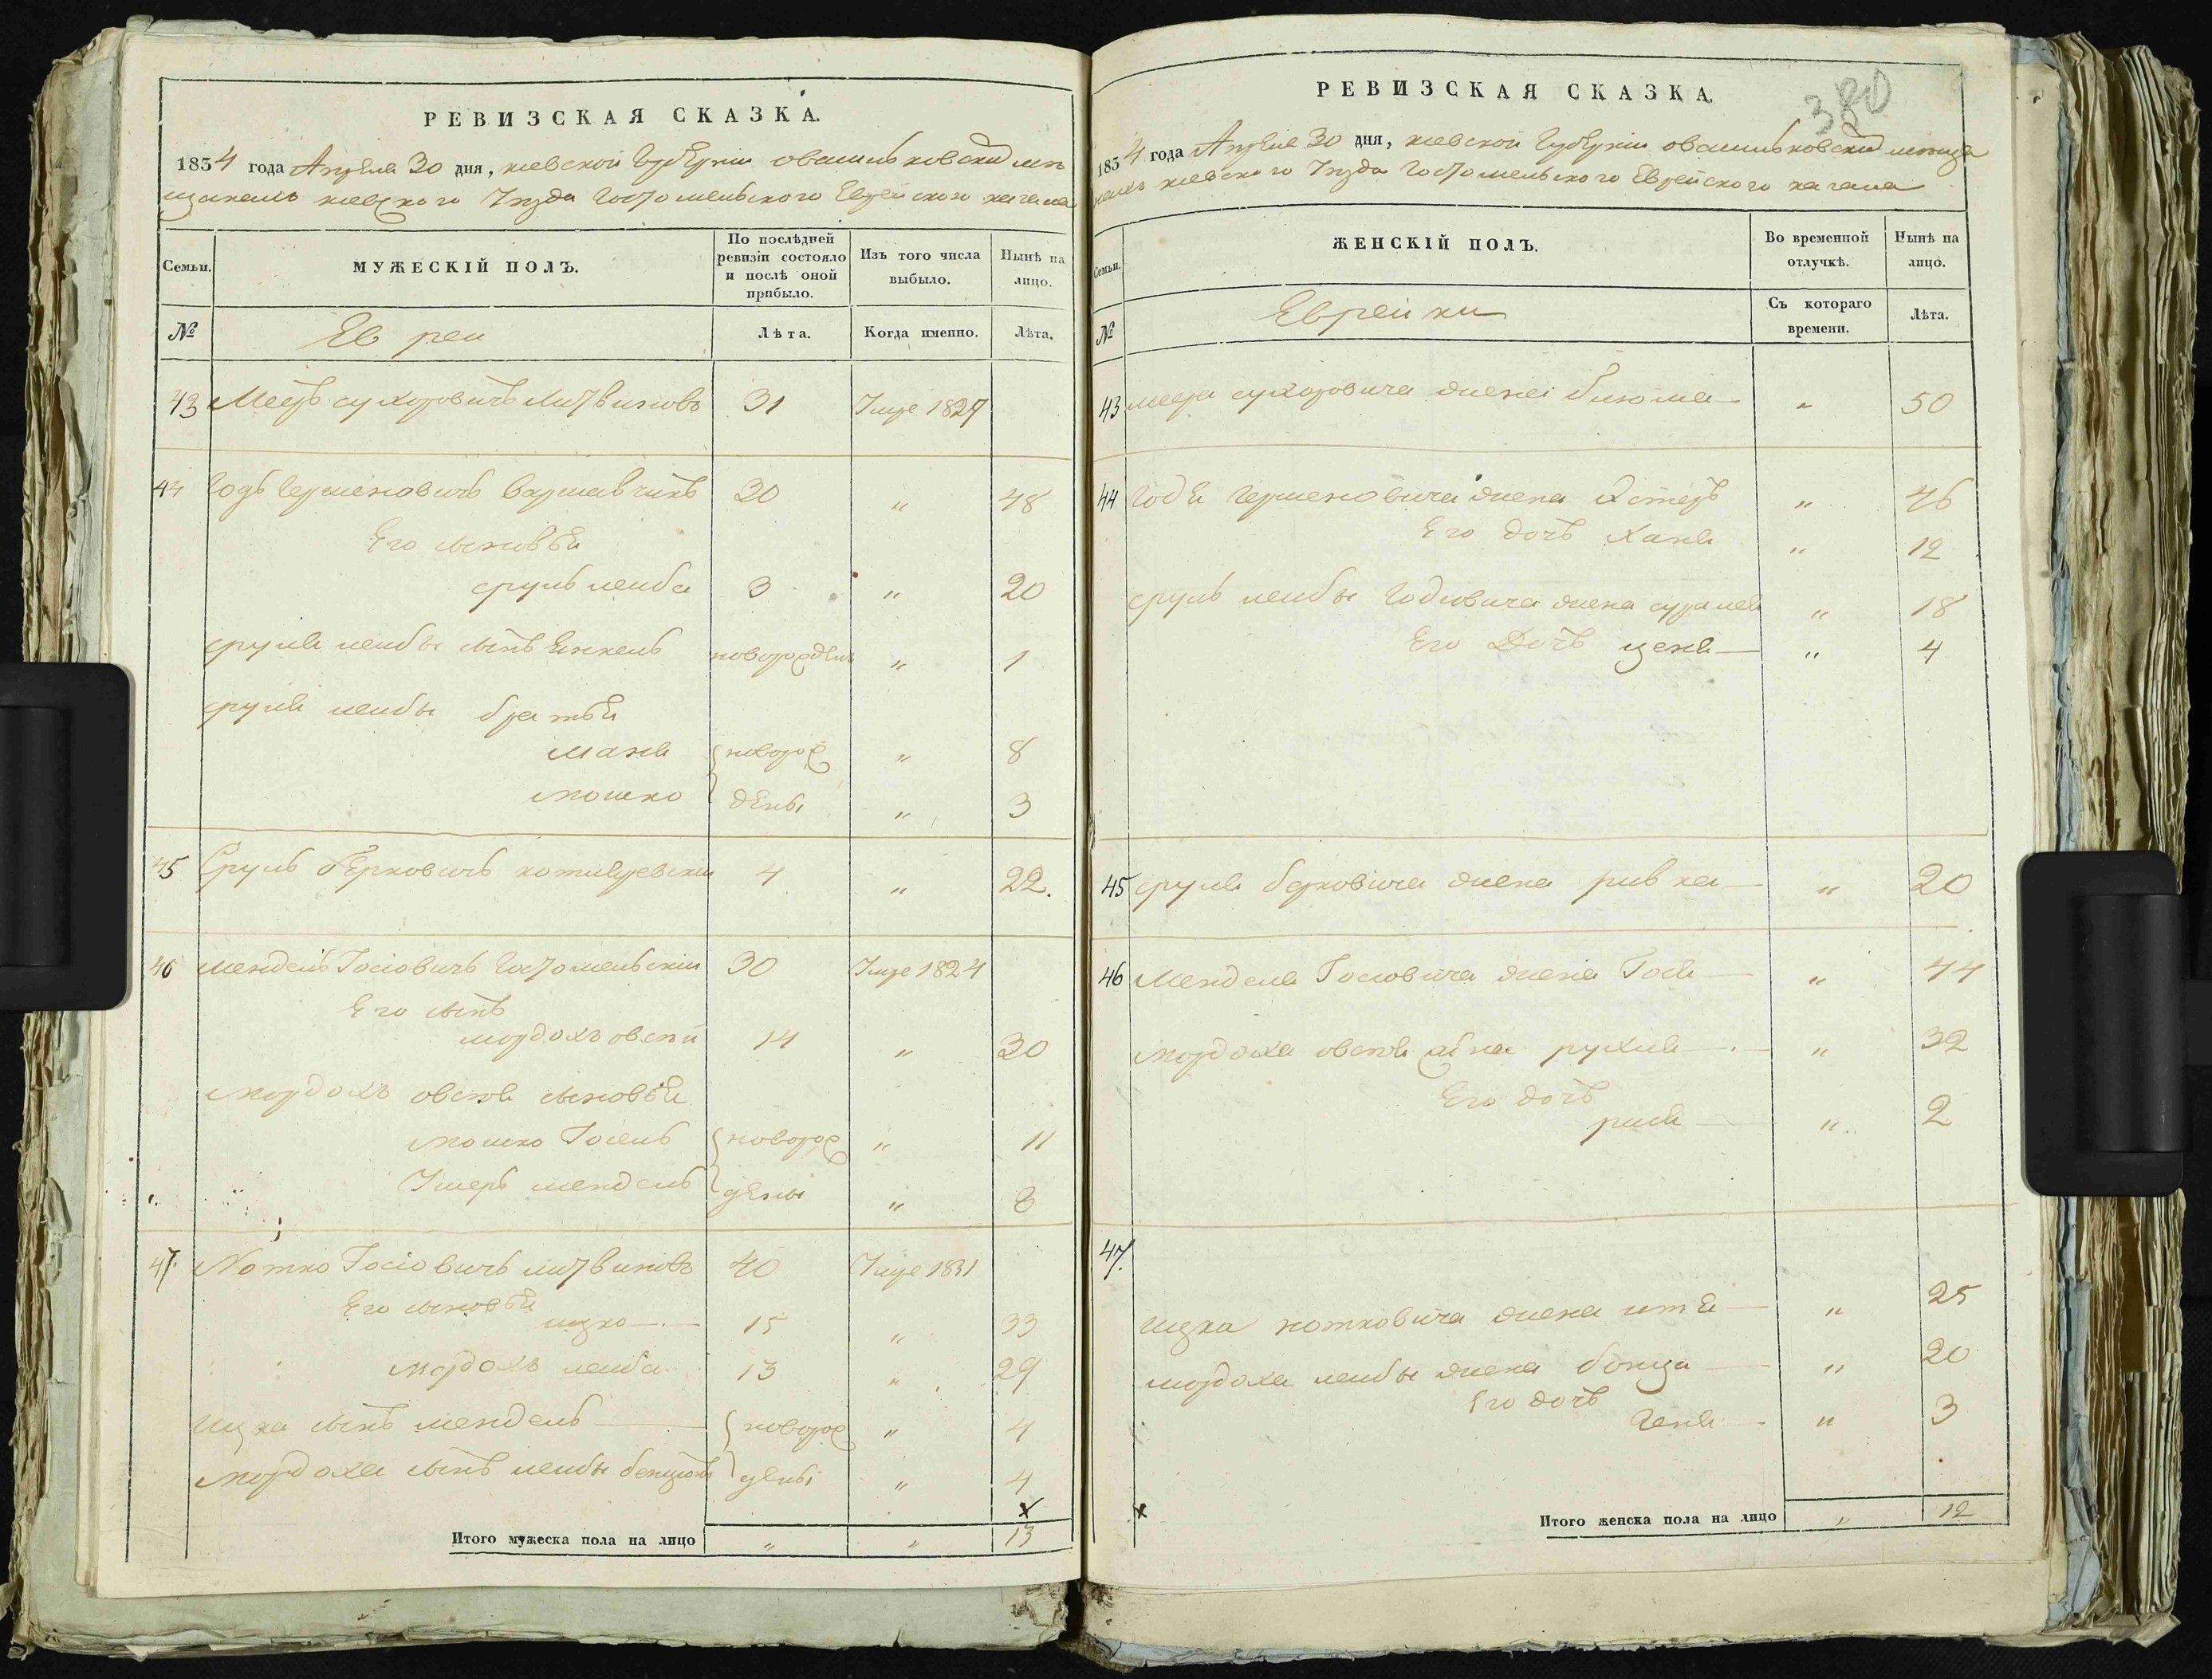 РЕВИЗСКАЯ СКАЗКА.
1834 года Апреля 30 дня, киевской Губерніи
киевского Уезда Гостомельского Еврейского кагала
Семьи.
МУЖЕСКІЙ ПОЛЪ.
По послѣдней ревизіи состояло и послѣ оной прибыло.
Изъ того числа выбыло.
Нынѣ на лицо.
№
Евреи
Лѣта.
Когда именно.
Лѣта.
43 Мееръ Литвиновъ 31 Умре 1827
44 Годь Гершеновичъ Варшавчикъ 30 " 48
Его сыновья
сруль лейба 3 " 20
сруля лейбы сынъ Енкель новорожденъ " 1
сруля лейбы братья
маня { новорож " 8
мошко дены " 3
45 Сруль Берковичъ 4 " 22.
46 мендель Іосіовичъ Гостомельскій 30 Умре 1824
Его сынъ
мордохъ овсей 14 " 30
мордохъ овсея сыновья
мошко Іосель { новорож " 11
мендель дены " 8
47. Нотко Іосіовичъ литвиновъ 40 Умре 1831
Его сыновья ицко 15 " 33
мордохъ лейба 13 " 29
ицка сынъ мендель { новорож " 4
мордоха сынъ лейбы бенціонъ дены " 4
х
Итого мужеска пола на лицо " " 13
РЕВИЗСКАЯ СКАЗКА.
380
1834 года Апреля 30 дня, киевской Губерніи
киевского Уезда Гостомельского Еврейского кагала
Семьи.
ЖЕНСКІЙ ПОЛЪ.
Во временной отлучкѣ.
Нынѣ на лицо.
№
Еврейки
Съ котораго времени.
Лѣта.
43 меера жена блюма " 50
44 Годя Гершеновича жена Эстеръ " 46
Его дочь Хана " 12
сруль лейбы Годіовича жена " 18
Его Дочь цена " 4
45 сруля берковича жена ривка " 20
46 Менделя Іосіовича жена Гося " 44
мордоха овсея жена рухля " 32
Его дочь
рися " 2
47.
ицка нотковича жена итя " 25
мордоха лейбы жена бонца " 20
Его дочь
Геня " 3
х
Итого женска пола на лицо " 12